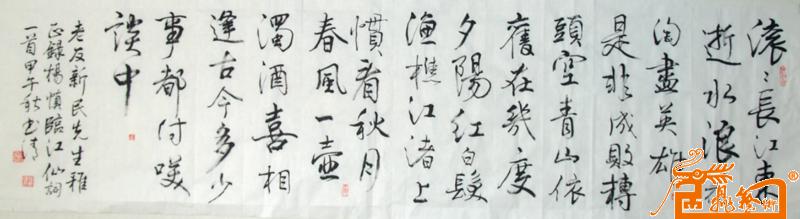 滚〻長江東
逝水浪花
淘盡英雄
是非成敗轉
頭空青山依
舊在幾度
夕陽紅白髮
漁樵江渚上
慣看秋月
春風一壺
濁酒喜相
逢古今多少
事都付笑
談中
老友新民先生雅
正録楊慎臨江仙詞
一首甲午秋